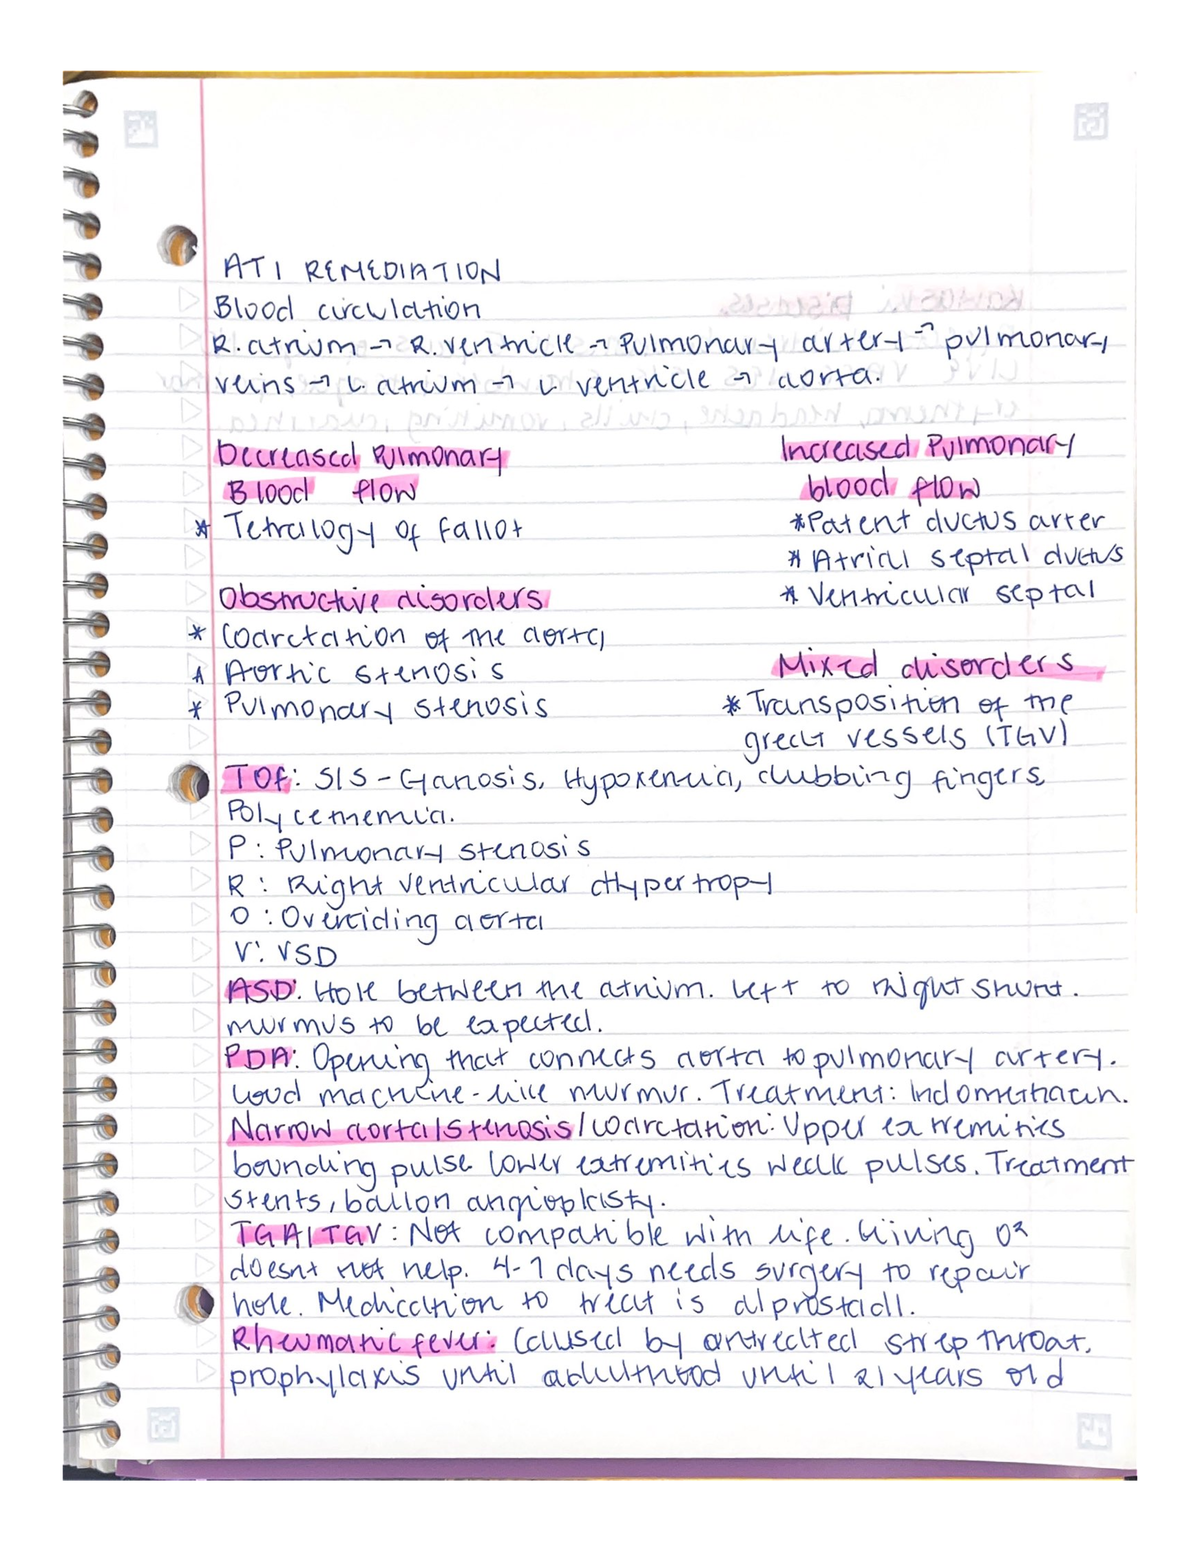 ATI REMEDIATION
Blood circulation
R. atrium → R. ventricle → Pulmonary artery → pulmonary
veins → L atrium → L ventricle → aorta.
Decreased Pulmonary
Blood flow
* Tetralogy of fallot
Increased Pulmonary
blood flow
* Patent ductus arter
* Atrial septal ductus
* Ventricular septal
Obstructive disorders
* Coarctation of the aorta
* Aortic stenosis
* Pulmonary stenosis
Mixed disorders
* Transposition of the
great vessels (TGV)
TOf: S/S - Cyanosis, Hypoxemia, clubbing fingers,
Polycememia.
P: Pulmonary stenosis
R: Right ventricular Hypertropy
O: Overriding aorta
V: VSD
ASD: Hole between the atrium. Left to right shunt.
murmus to be expected.
PDA: Opening that connects aorta to pulmonary artery.
Loud machine-like murmur. Treatment: Indomethacin.
Narrow aorta/stenosis/coarctation: Upper extremities
bounding pulse lower extremities weak pulses. Treatment
stents, ballon angioplasty.
TGA/TGV: Not compatible with life. Giving O2
doesnt not help. 4-7 days needs surgery to repair
hole. Medication to treat is alprostadil.
Rheumatic fever: Caused by untreated strep throat.
prophylaxis until adulthood until 21 years old